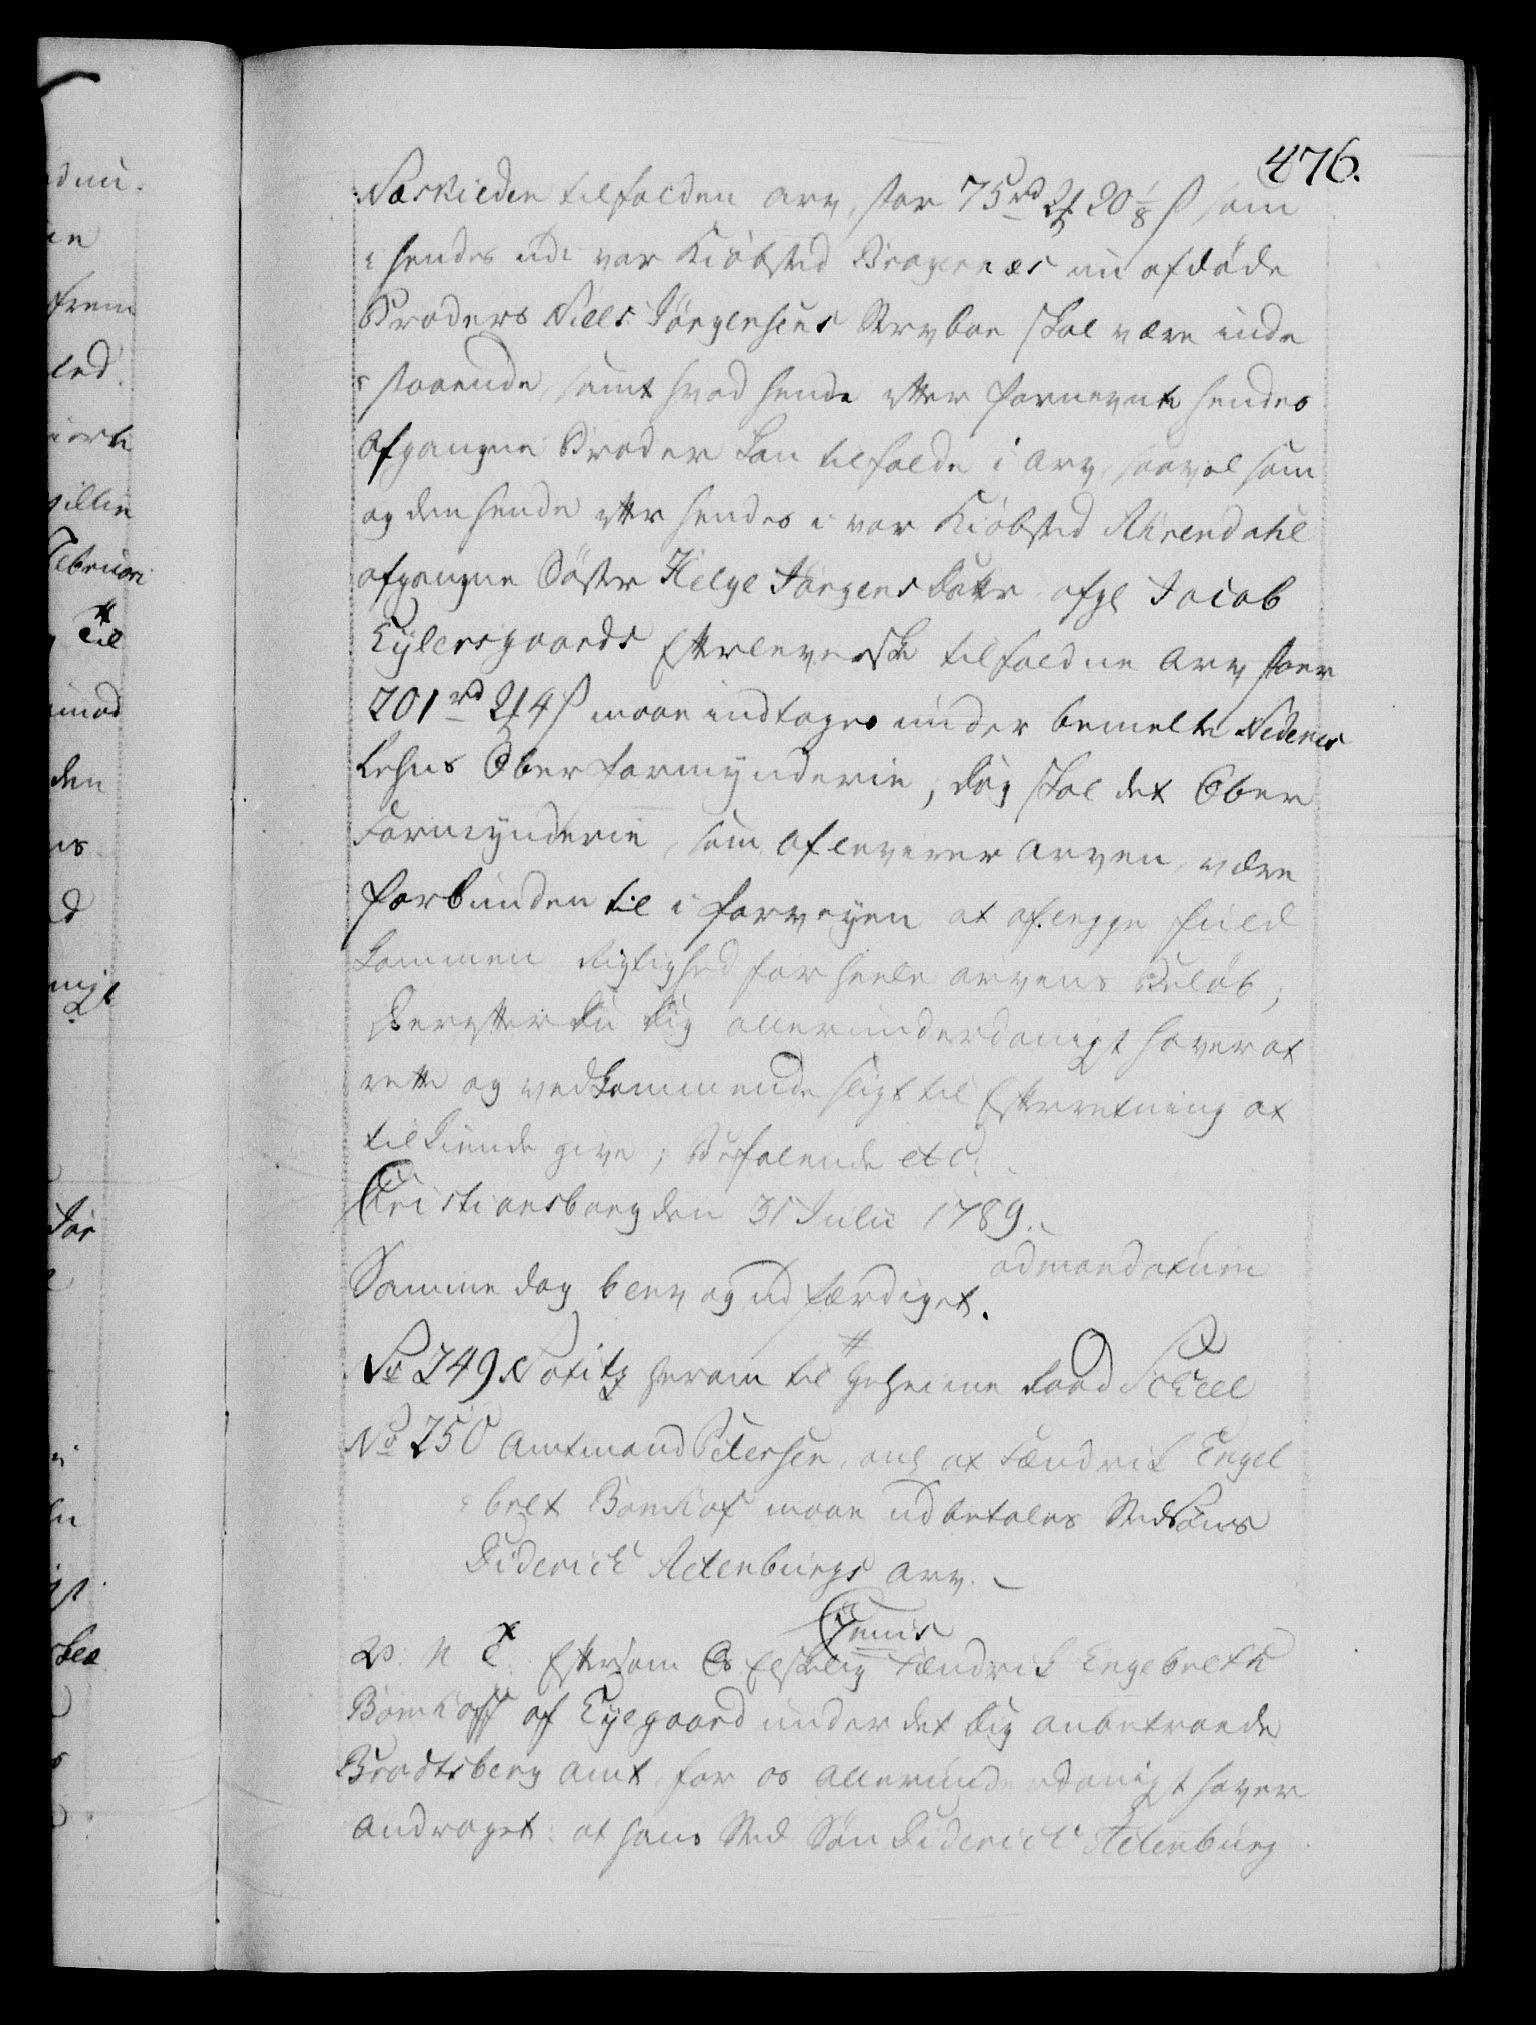 476.
Næskilden tilfalden Arv, stor 75 rd 2 ₰ 20 1/8 ß som
i hendes udi vor Kiøbsted Bragenæs nu afdøde
Broders Niels Jörgensens Sterbboe skal være inde
staaende, samt hvad hende efter fornevnte hendes
Afgangne Broder kan tilfalde i Arv, saavel som
og den hende efter hendes i vor Kiøbsted Ahrendahl
afgangne Søster Helge Jörgens datter, afg. Jacob
Eylersgaards Efterleverske tilfaldne Arv stoer
201 rd 2 ₰ 4 ß maae indtages under bemelte Nedenes
Lehns Ober formynderie, dog skal det Ober
Formynderie, som afleverer Arven, være
forbunden til i forveyen at aflegge fuld
kommen Rigtighed for heele Arvens Beløb;
Derefter du dig allerunderdanigst haver at
rette og vedkommende sligt til Efterretning at
tilkiende give; Befalende etc.
Christiansborg den 31 Julii 1789.
ad mandatum
Samme dag blev og udfærdiget.
No 249 Notitz herom til Geheime Raad Scheel
No 250 Amtmand Petersen, ang at Fændrik Engel
bret Bomhof maae udbetales Stedsøns
Diderich Aetenburgs Arv.
Eftersom Os Elskelig Fændrik Engebreth
Bomhoff af Eyegaard under det dig anbetroede
Bradtsberg Amt, for os allerunderdanigst haver
andraget: at hans Sted Søn Diderich Aetenburg